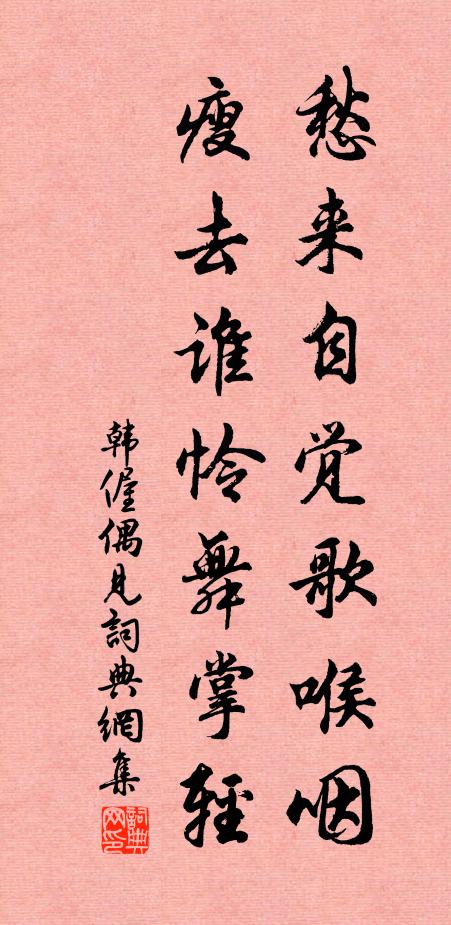 愁来自觉歌喉咽
瘦去谁怜舞掌轻
韩偓偶见詞典網集
詞典网印